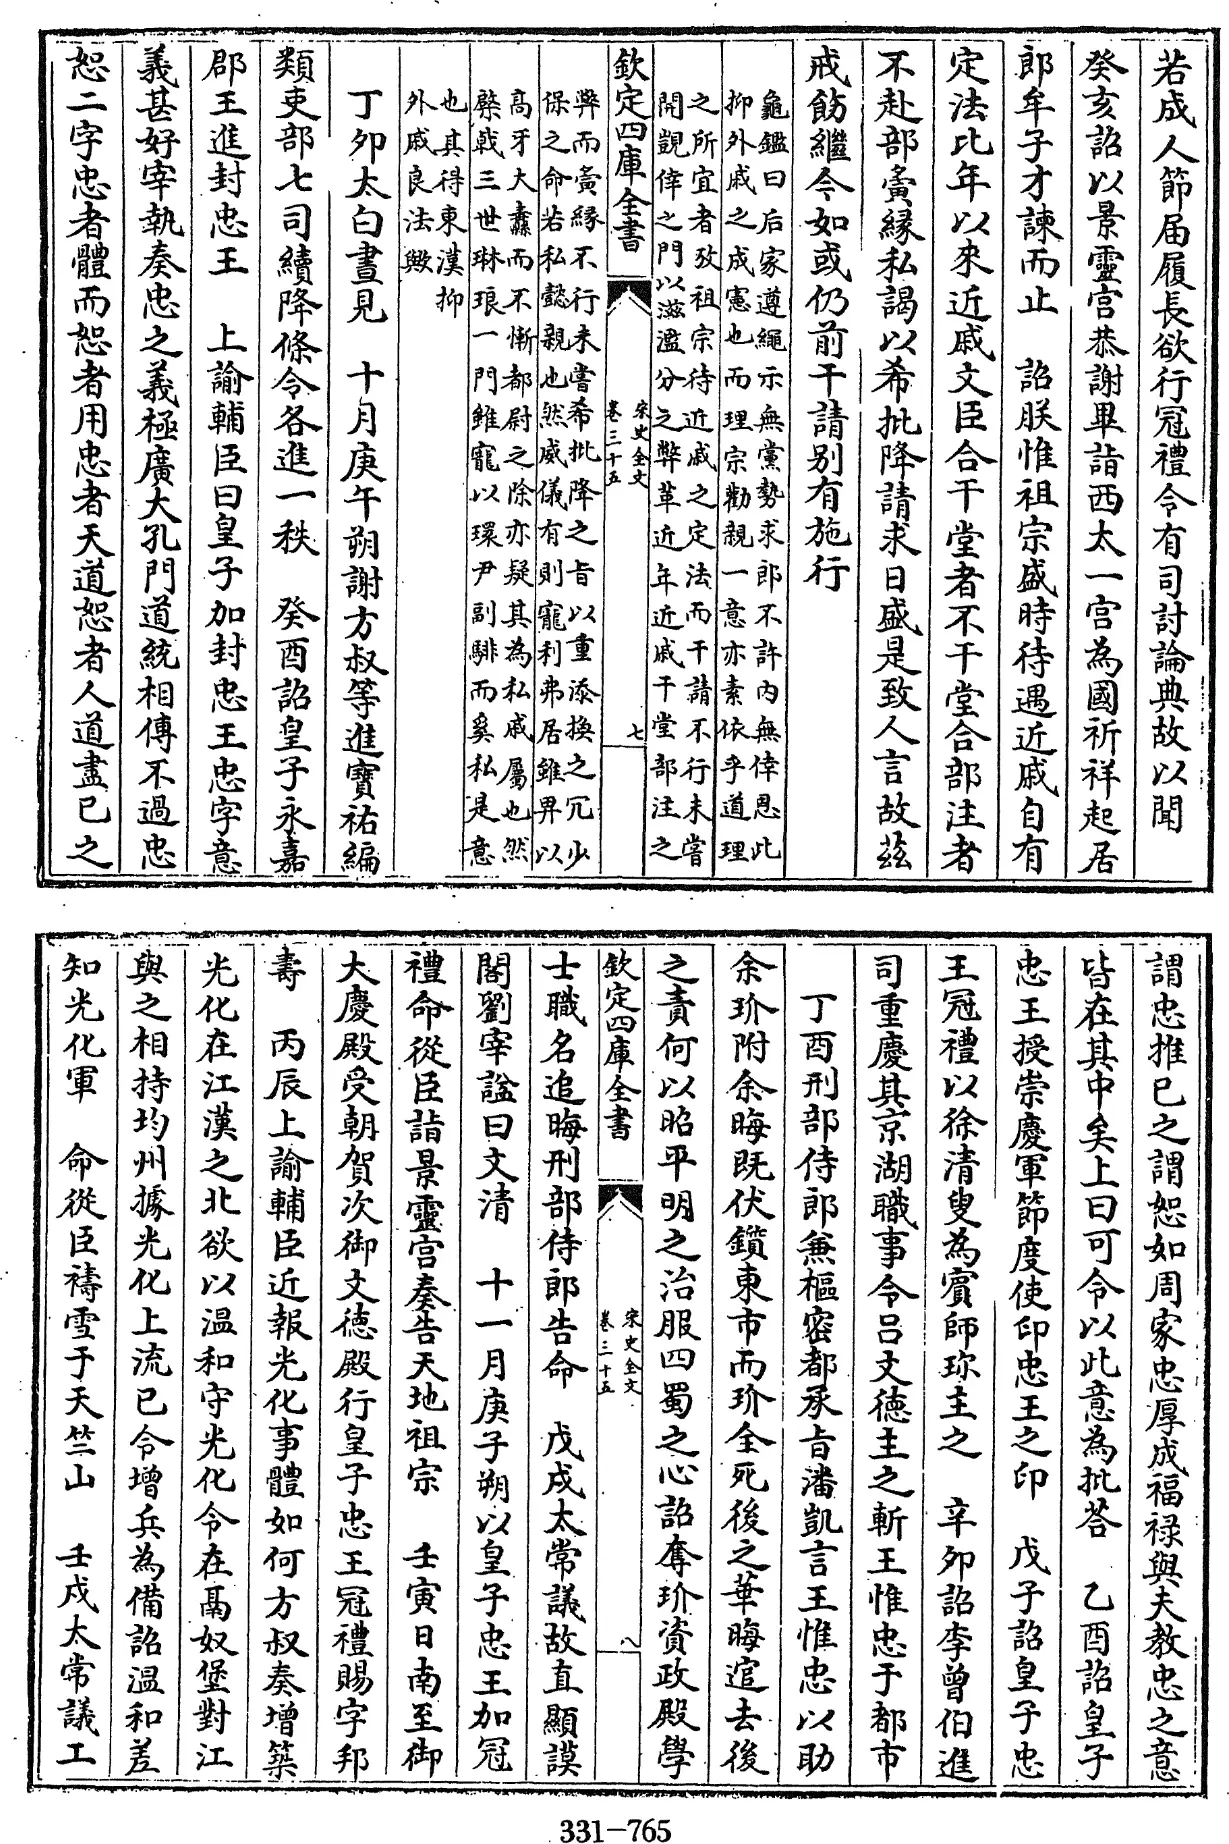 若成人節届履長欲行冠禮令有司討論典故以聞
癸亥詔以景靈宫恭謝畢詣西太一宫為國祈祥起居
郎牟子才諫而止　詔朕惟祖宗盛時待遇近戚自有
定法比年以來近戚文臣合干堂者不干堂合部注者
不赴部夤縁私謁以希批降請求日盛是致人言故茲
戒飭繼今如或仍前干請别有施行
龜鑑曰后家遵繩示無黨勢求郎不許内無倖恩此
抑外戚之成憲也而理宗勸親一意亦素依乎道理
之所宜者攷祖宗待近戚之定法而干請不行未嘗
開覬倖之門以滋濫分之弊革近年近戚干堂部注之
欽定四庫全書
宋史全文
卷三十五
七
弊而夤縁不行未嘗希批降之旨以重添換之冗少
保之命若私懿親也然威儀有則寵利弗居雖畀以
高牙大纛而不慚都尉之除亦疑其為私戚屬也然
棨戟三世琳琅一門雖寵以環尹副騑而奚私是意
也其得東漢抑
外戚良法歟
丁夘太白晝見　十月庚午朔謝方叔等進寶祐編
類吏部七司續降條令各進一秩　癸酉詔皇子永嘉
郡王進封忠王　上諭輔臣曰皇子加封忠王忠字意
義甚好宰執奏忠之義極廣大孔門道統相傳不過忠
恕二字忠者體而恕者用忠者天道恕者人道盡已之
謂忠推已之謂恕如周家忠厚成福禄與夫教忠之意
皆在其中矣上曰可令以此意為批荅　乙酉詔皇子
忠王授崇慶軍節度使印忠王之印　戊子詔皇子忠
王冠禮以徐清叟為賓師琢主之　辛夘詔李曾伯進
司重慶其京湖職事令吕文德主之斬王惟忠于都市
丁酉刑部侍郎兼樞密都承旨潘凱言王惟忠以助
余玠附余晦既伏鑕東市而玠全死後之華晦逭去後
之責何以昭平明之治服四蜀之心詔奪玠資政殿學
欽定四庫全書
宋史全文
卷三十五
八
士職名追晦刑部侍郎告命　戊戌太常議故直顯謨
閣劉宰諡曰文清　十一月庚子朔以皇子忠王加冠
禮命從臣詣景靈宫奏告天地祖宗　壬寅日南至御
大慶殿受朝賀次御文德殿行皇子忠王冠禮賜字邦
壽　丙辰上諭輔臣近報光化事體如何方叔奏增築
光化在江漢之北欲以温和守光化令在鬲奴堡對江
與之相持均州據光化上流已令增兵為備詔温和差
知光化軍　命從臣禱雪于天竺山　壬戌太常議工
331-765